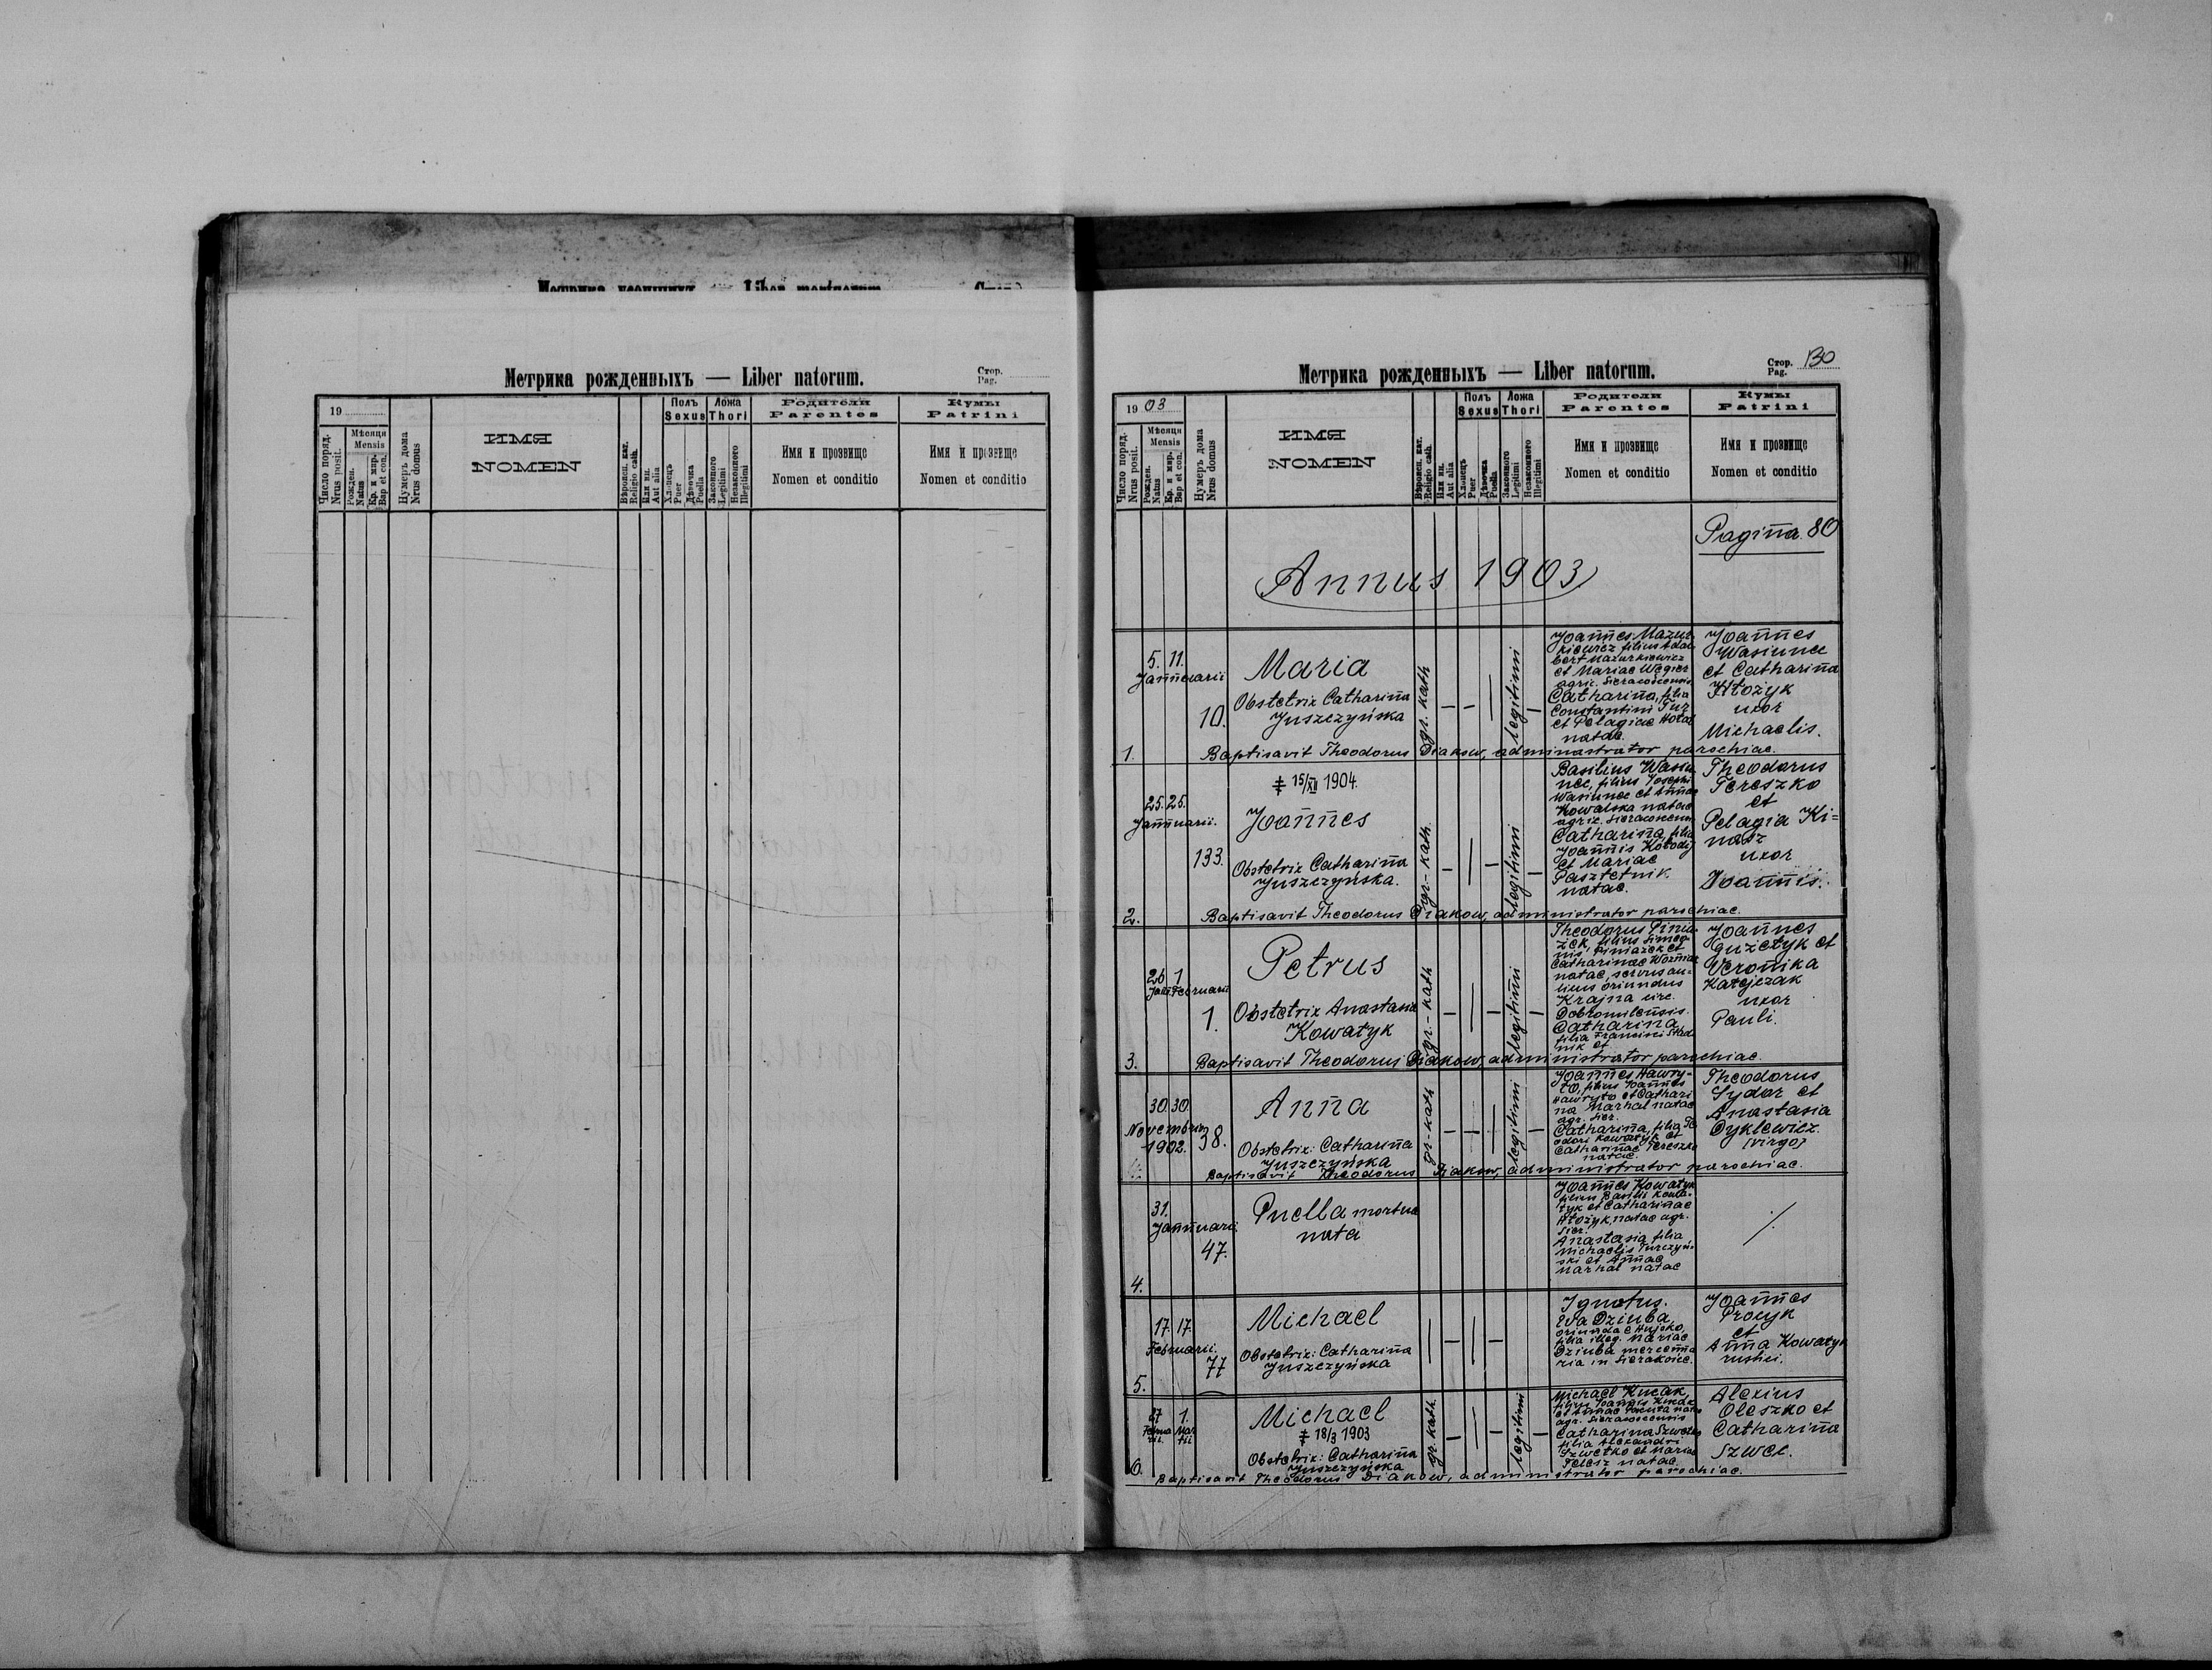 Метрика рожденныхъ — Liber natorum.
Стор.
Pag.
19
Число поряд.
Nrus posit.
Мѣсяця
Mensis
Рожден.
Natus
Кр. и мир.
Bap et con.
Нумеръ дома
Nrus domus
ИМЯ
NOMEN
Вѣроисп. кат.
Religio cath.
Или ин.
Aut alia
Полъ
Sexus
Хлопецъ
Puer
Дѣвочка
Puella
Ложа
Thori
Законного
Legitimi
Незаконного
Illegitimi
Родители
Parentes
Имя и прозвище
Nomen et conditio
Кумы
Patrini
Имя и прозвище
Nomen et conditio
Метрика рожденныхъ — Liber natorum.
Стор.
Pag. 130
1903
Число поряд.
Nrus posit.
Мѣсяця
Mensis
Рожден.
Natus
Кр. и мир.
Bap et con.
Нумеръ дома
Nrus domus
ИМЯ
NOMEN
Вѣроисп. кат.
Religio cath.
Или ин.
Aut alia
Полъ
Sexus
Хлопецъ
Puer
Дѣвочка
Puella
Ложа
Thori
Законного
Legitimi
Незаконного
Illegitimi
Родители
Parentes
Имя и прозвище
Nomen et conditio
Кумы
Patrini
Имя и прозвище
Nomen et conditio
Pagina 80
Annus 1903
5. 11.
Januarii
10.
Maria
Obstetrix Catharina
Juszczyńska
gr. kath
legitimi
Joannes Mazur
kiewicz filius Adal
bert Mazurkiewicz
et Mariae Węgier
agric. Sieracoscensis
Catharina, filia
Constantini Tur
et Pelagiae Hotal
natae.
Joannes
Wasiunec
et Catharina
Htożyk
uxor
Michaelis.
1. Baptisavit Theodorus Diakow, administrator parochiae.
25. 25.
Januarii.
133.
‡ 15/XII 1904.
Joannes
Obstetrix Catharina
Juszczyńska.
gr.-kath.
legitimi
Basilius Wasiu
nec, filius Josephi
Wasiunec et Annae
Kowalska natae
agric. Sieracoscensis
Catharina, filia
Joannis Kołodij
et Mariae
Pasztetnik
natae.
Theodorus
Tereszko
et
Pelagia Ki=
nasz
uxor
Joannis.
2. Baptisavit Theodorus Diakow, administrator parochiae.
26 1
Jan. Februarii
1.
Petrus
Obstetrix Anastasia
Kowatyk
gr.-kath
legitimi
Theodorus Pinia
żek, filius Simeo
nis Piniażek et
Catharinae Woźniak
natae, servus au-
licus oriundus
Krajna circ.
Dobromilensis.
Catharina
filia Francisci Stad
nik et
Joannes
Guzetyk et
Veronika
Katejczak
uxor
Pauli.
3. Baptisavit Theodorus Diakow, administrator parochiae.
30. 30.
Novembris
1902.
38.
Anna
Obstetrix: Catharina
Juszczyńska
gr-kath
legitimi
Joannes Hawry-
ło, filius Joannes
Hawryło et Cathari
na Marhal natae
agr. Sier.
Catharina, filia Te
odori Kowatyk et
Catharinae Tereszko
natae.
Theodorus
Sydor et
Anastasia
Dyklewicz
(virgo)
Baptisavit Theodorus Diakow, administrator parochiae.
31.
Januarii.
47.
Puella mortue
nata
Joannes Kowatyk
filius Basilii Kowa-
tyk et Catharinae
Htożyk, natae agr.
Sier.
Anastasia filia
Michaelis Turczyń-
ski et Annae
Marhal natae
4.
17. 17.
Februarii.
77
Michael
Obstetrix: Catharina
Juszczyńska
Ignotus.
Eva Dziuba,
oriunda e Hujsko,
filia illeg. Mariae
Dziuba mercenna
ria in Sierakośce.
Joannes
Procyk
et
Anna Kowatyk
rustici.
5.
27 1.
Februa Mar
rii. tii
Michael
‡ 18/3 1903
Obstetrix: Catharina
Juszczyńska
gr.kath.
legitimi
Michael Kucak,
filius Joannis Kucak
agr. Sieracoscensis
Catharina Szwetko
filia Alexandri
Szwetko et Mariae
Telesz natae.
Alexius
Oleszko et
Catharina
Szwec.
6.
Baptisavit Theodorus Diakow, administrator parochiae.